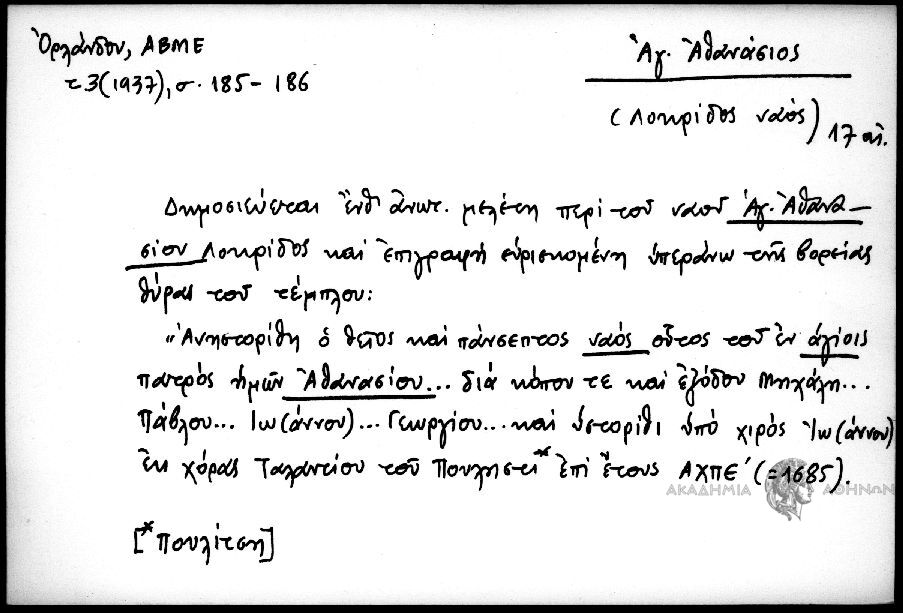 Ὀρλάνδου, ΑΒΜΕ
τ3(1937), σ. 185-186
Ἁγ. Ἀθανάσιος
(Λοκρίδος ναός) 17 αἰ.
Δημοσιεύεται ἔνθ' ἀνωτ. μελέτη περί τοῦ ναοῦ Ἁγ. Ἀθανα-
σίου Λοκρίδος καί ἐπιγραφή εὑρισκομένη ὑπεράνω τῆς βορείας
θύρας τοῦ τέμπλου:
"Ἀνηστορίθη ὁ θεῖος καί πάνσεπτος ναός οὗτος τοῦ ἐν ἁγίοις
πατρός ἡμῶν Ἀθανασίου... διά κόπου τε καί ἐξόδου Μηχάλη...
Πάβλου... Ἰω(άννου)... Γεωργίου... καί ὑστορίθι ὑπό χιρός Ἰω(άννου)
ἐκ χόρας Ταλαντίου τοῦ Πουλητζι* ἐπί ἔτους ΑΧΠΕ' (=1685).
[*Πουλίτση]
ΑΚΑΔΗΜΙΑ ΑΘΗΝΩΝ